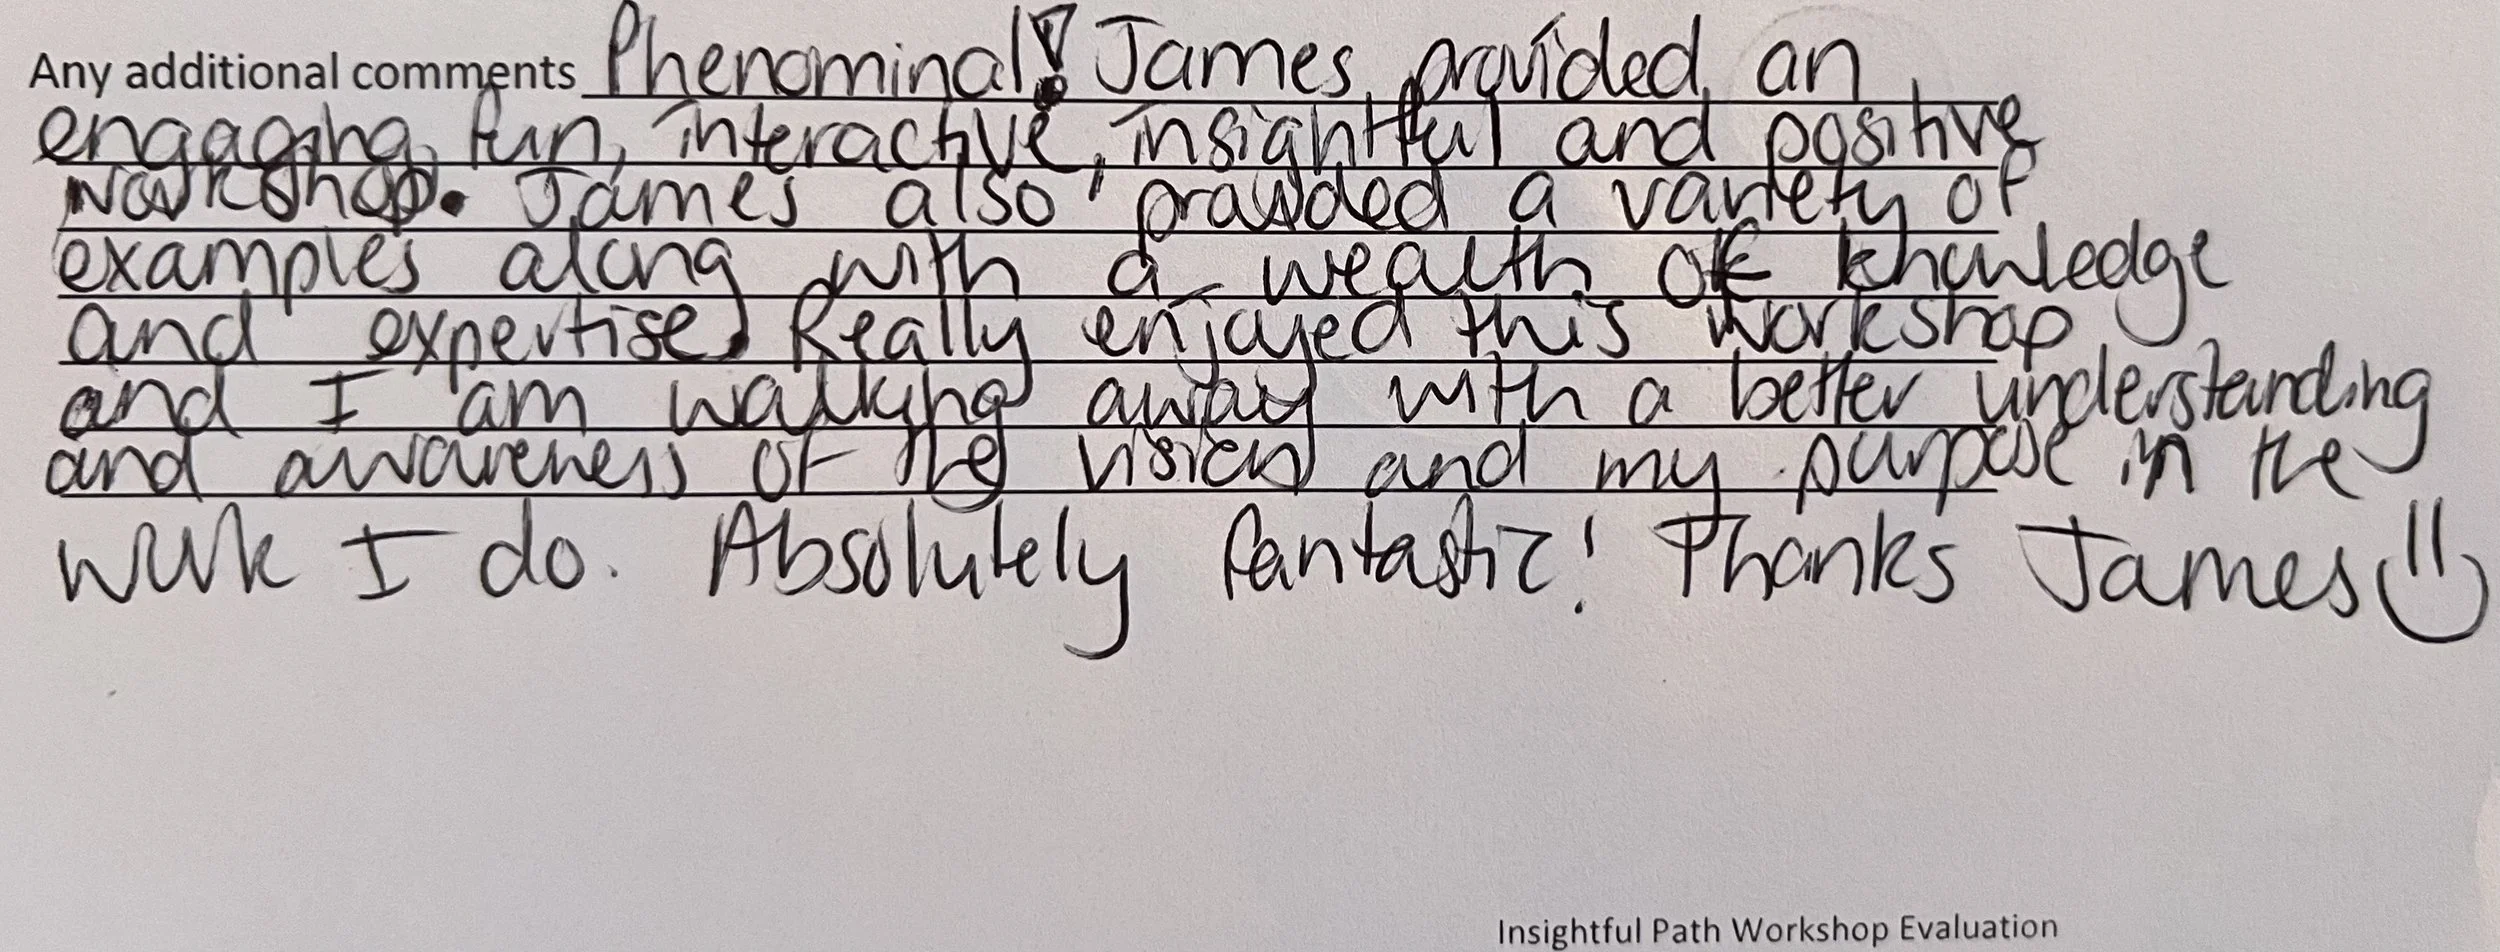 Any additional comments Phenominal! James provided an
engaging, fun, interactive, insightful and positive
workshop. James also provided a variety of
examples along with a wealth of knowledge
and expertise. Really enjoyed this workshop
and I am walking away with a better understanding
and awareness of the vision and my purpose in the
work I do. Absolutely fantastic! Thanks James
Insightful Path Workshop Evaluation